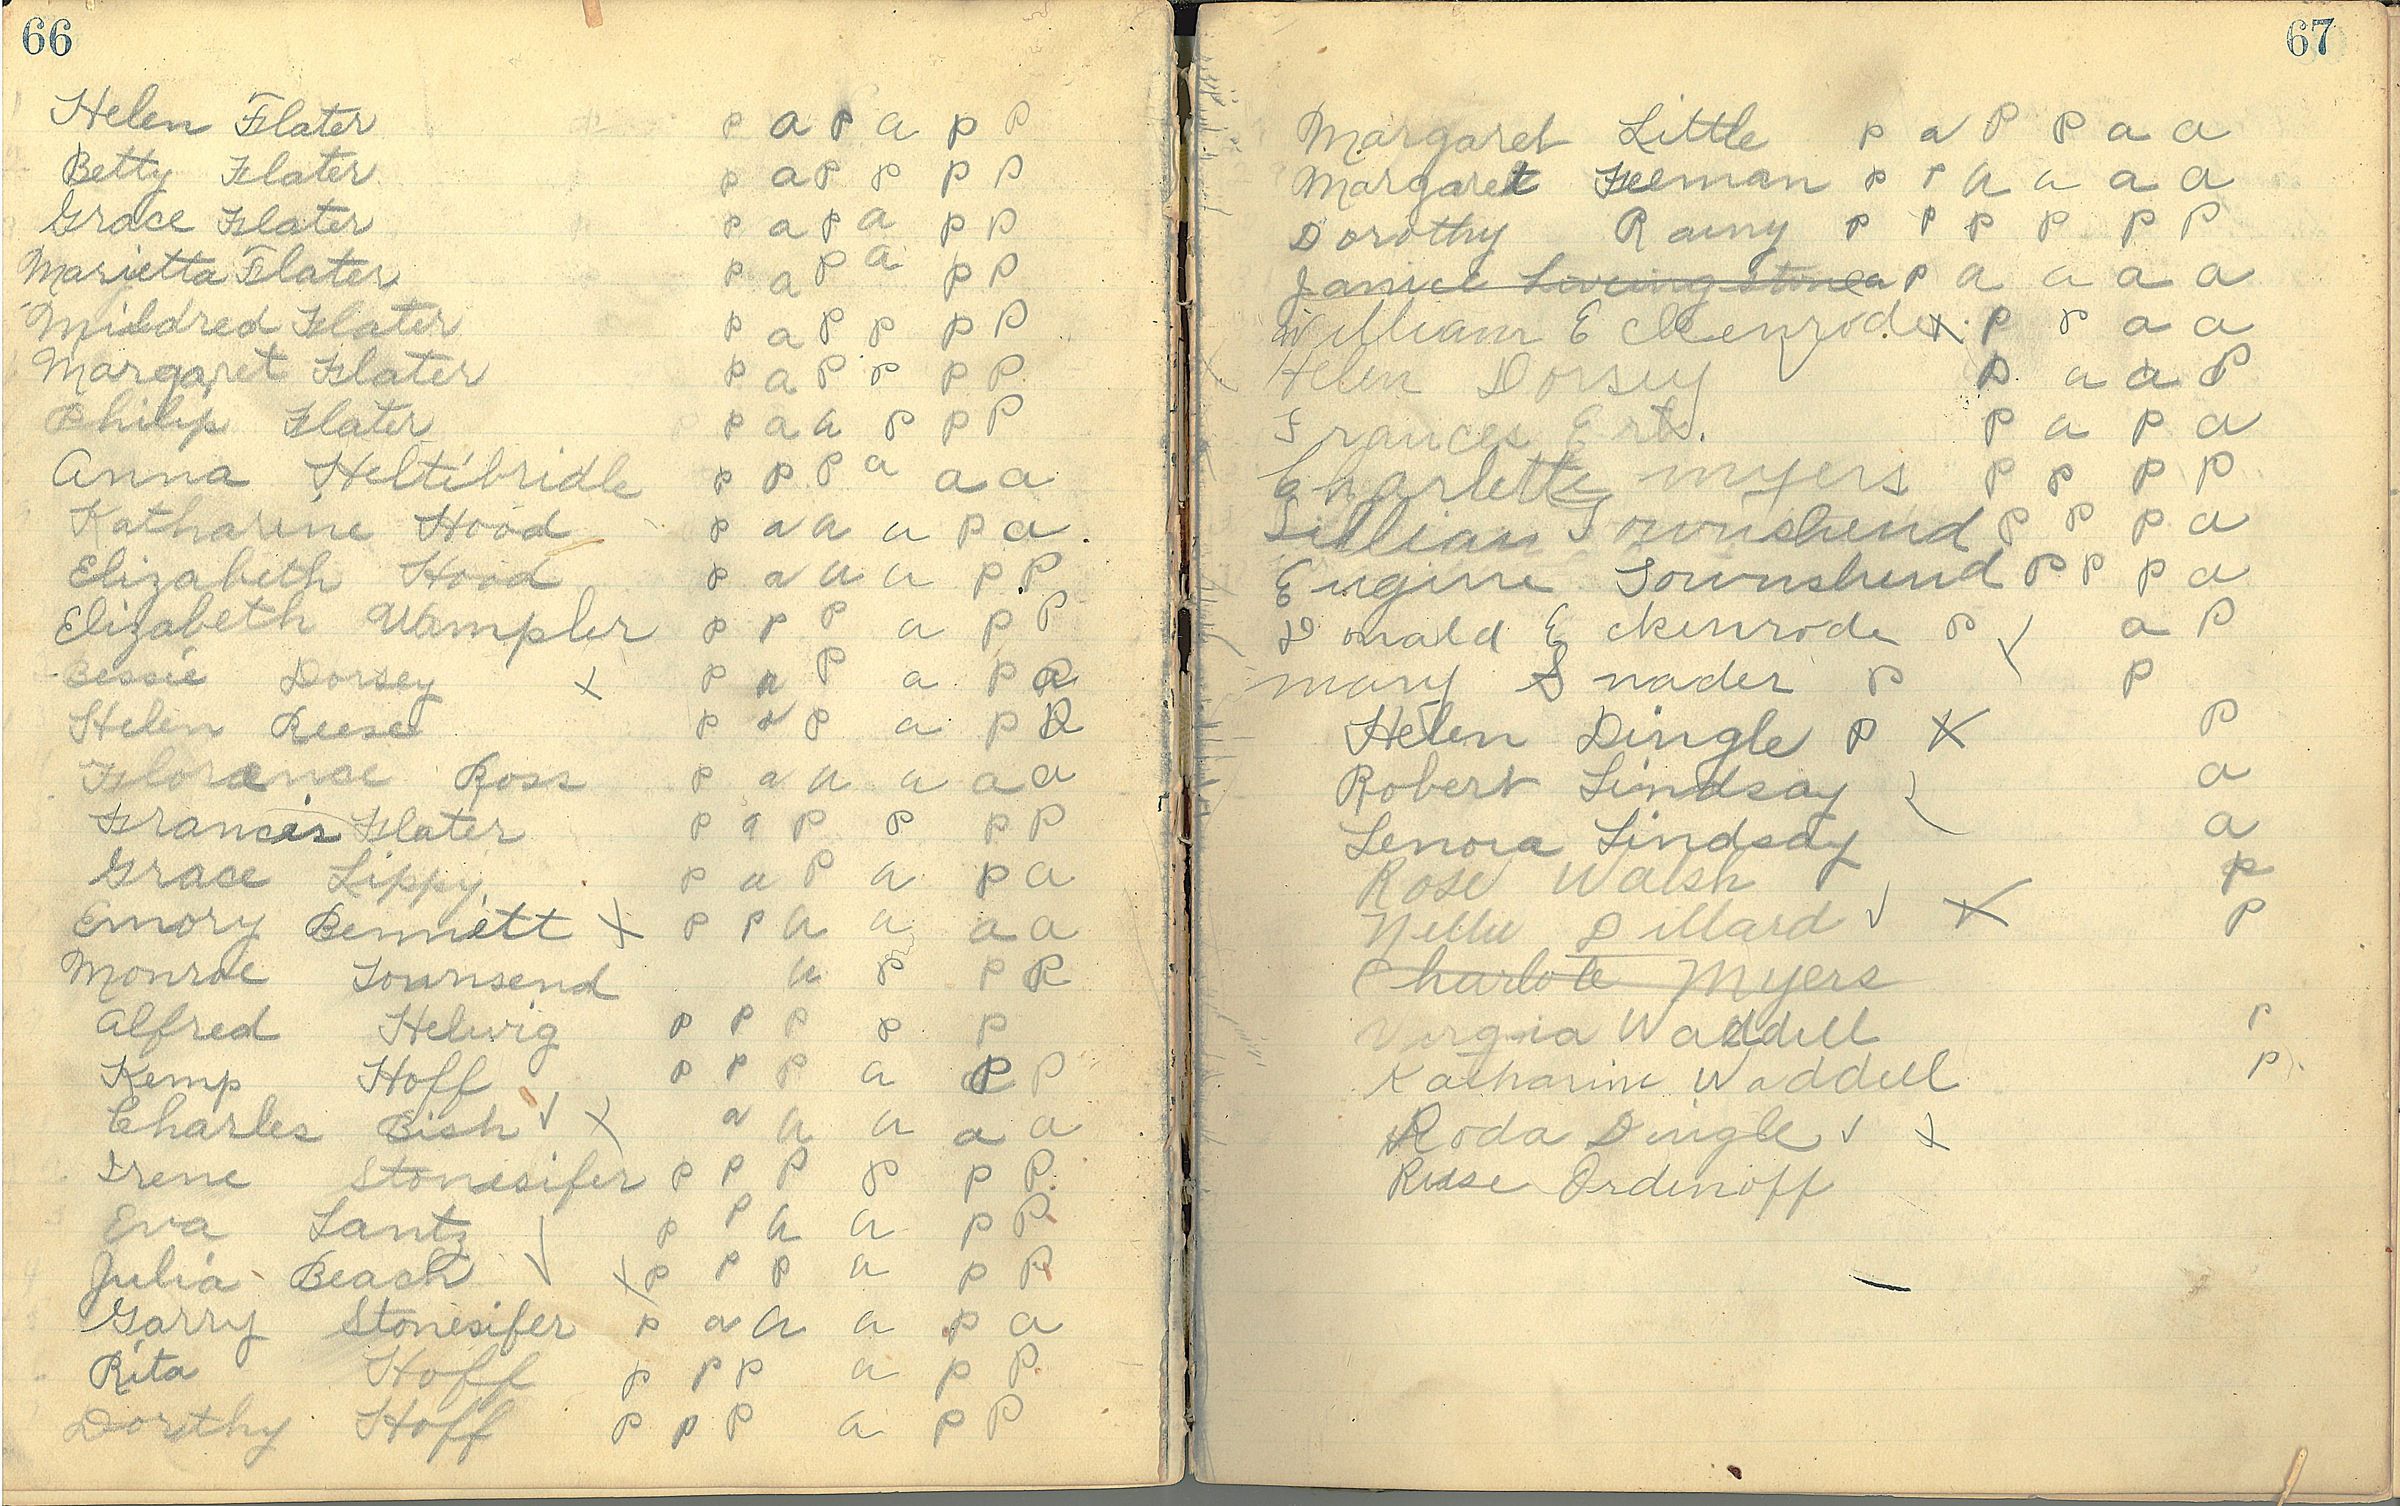 66
Helen Flater p a p a p p
Betty Flater p a p p p p
Grace Flater p a p a p p
Marietta Flater p a p a p p
Mildred Flater p a p p p p
Margaret Flater p a p p p p
Philip Flater p a a p p p
Anna Heltibridle p p p a a a
Katharine Hood p a a a p a
Elizabeth Hood p a a a p p
Elizabeth Wampler p p p a p p
Bessie Dorsey x p a p a p
Helen Reese p a p a p
Florence Ross p a a a a a
Francis Flater p a p p p p
Grace Lippy p a p a p a
Emory Bennett x p p a a a a
Monroe Townsend a p p
Alfred Helwig p p p p p
Kemp Hoff p p p a p p
Charles Bish ✓ x a a a a a
Irene Stonesifer p p p p p p
Eva Lantz p p a a p p
Julia Beach ✓ x p p p a p p
Garry Stonesifer p a a a p a
Rita Hoff p p p a p p
Dorthy Hoff p p p a p p
67
Margaret Little p a p p a a
Margaret Feeman p p a a a a
Dorothy Rainy p p p p p p
Janice Livingstone a p a a a a
William Eckenrode x p p a a
Helen Dorsey p a a p
Frances Ert. p a p a
Charlette Myers p p p p
Lillian Townshend p p p a
Eugine Townshend p p p a
Donald Eckenrode p x a p
Mary Snader p p
Helen Dingle p x p
Robert Lindsay a
Lenora Lindsay a
Rose Walsh p
Nellie Dillard ✓ x p
Charlote Myers
Virginia Waddell p
Katharine Waddell p
Roda Dingle ✓ x
Ruse Ordinoff